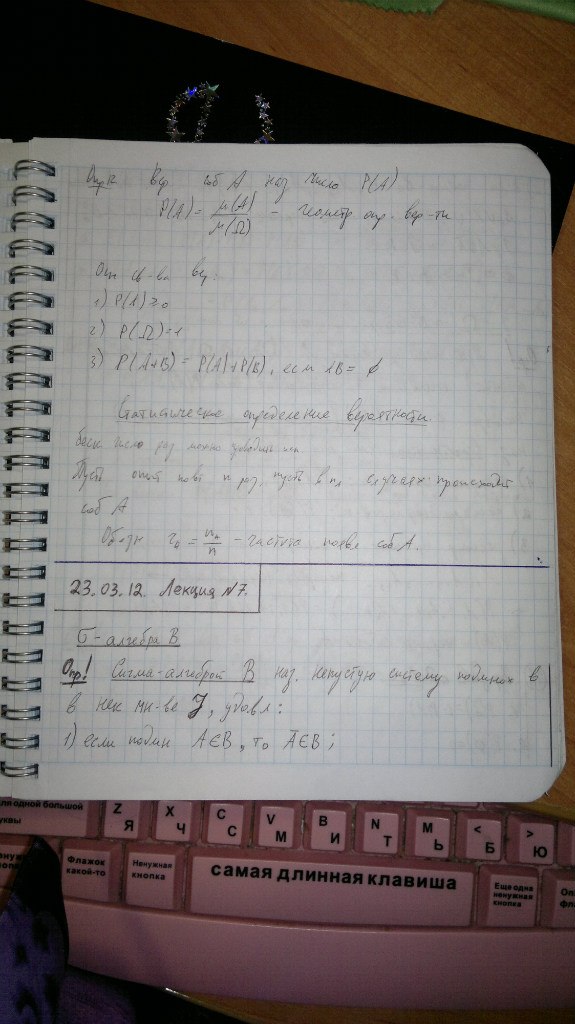 Опр вер соб А наз число P(A)
P(A) = μ(A)/μ(Ω) - геометр опр. вер-ти
Осн св-ва вер:
1) P(A) ≥ 0
2) P(Ω) = 1
3) P(A+B) = P(A)+P(B), если AB = ∅
Статистическое определение вероятности.
беск число раз можно
Пусть опыт повт n раз, пусть в nA случаях происходит
соб А
Обозн rA = nA/n - частота появл соб А.
23.03.12. Лекция №7.
σ-алгебра B
Опр! Сигма-алгеброй B наз. непустую систему подмнож в
в нек мн-ве J, удовл:
1) если подмн A∈B, то Ā∈B;
для одной большой
буквы
Z Я
X Ч
C С
V М
B И
N Т
M Ь
< Б
> Ю
Флажок
какой-то
Ненужная
кнопка
самая длинная клавиша
Еще одна
ненужная
кнопка